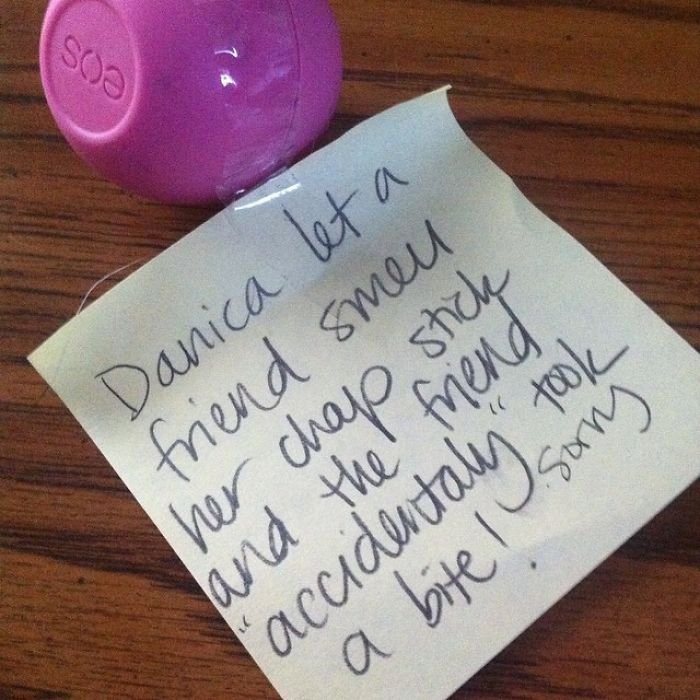 eos
Danica let a
friend smell
her chap stick
and the friend
"accidentaly" took
a bite! sorry